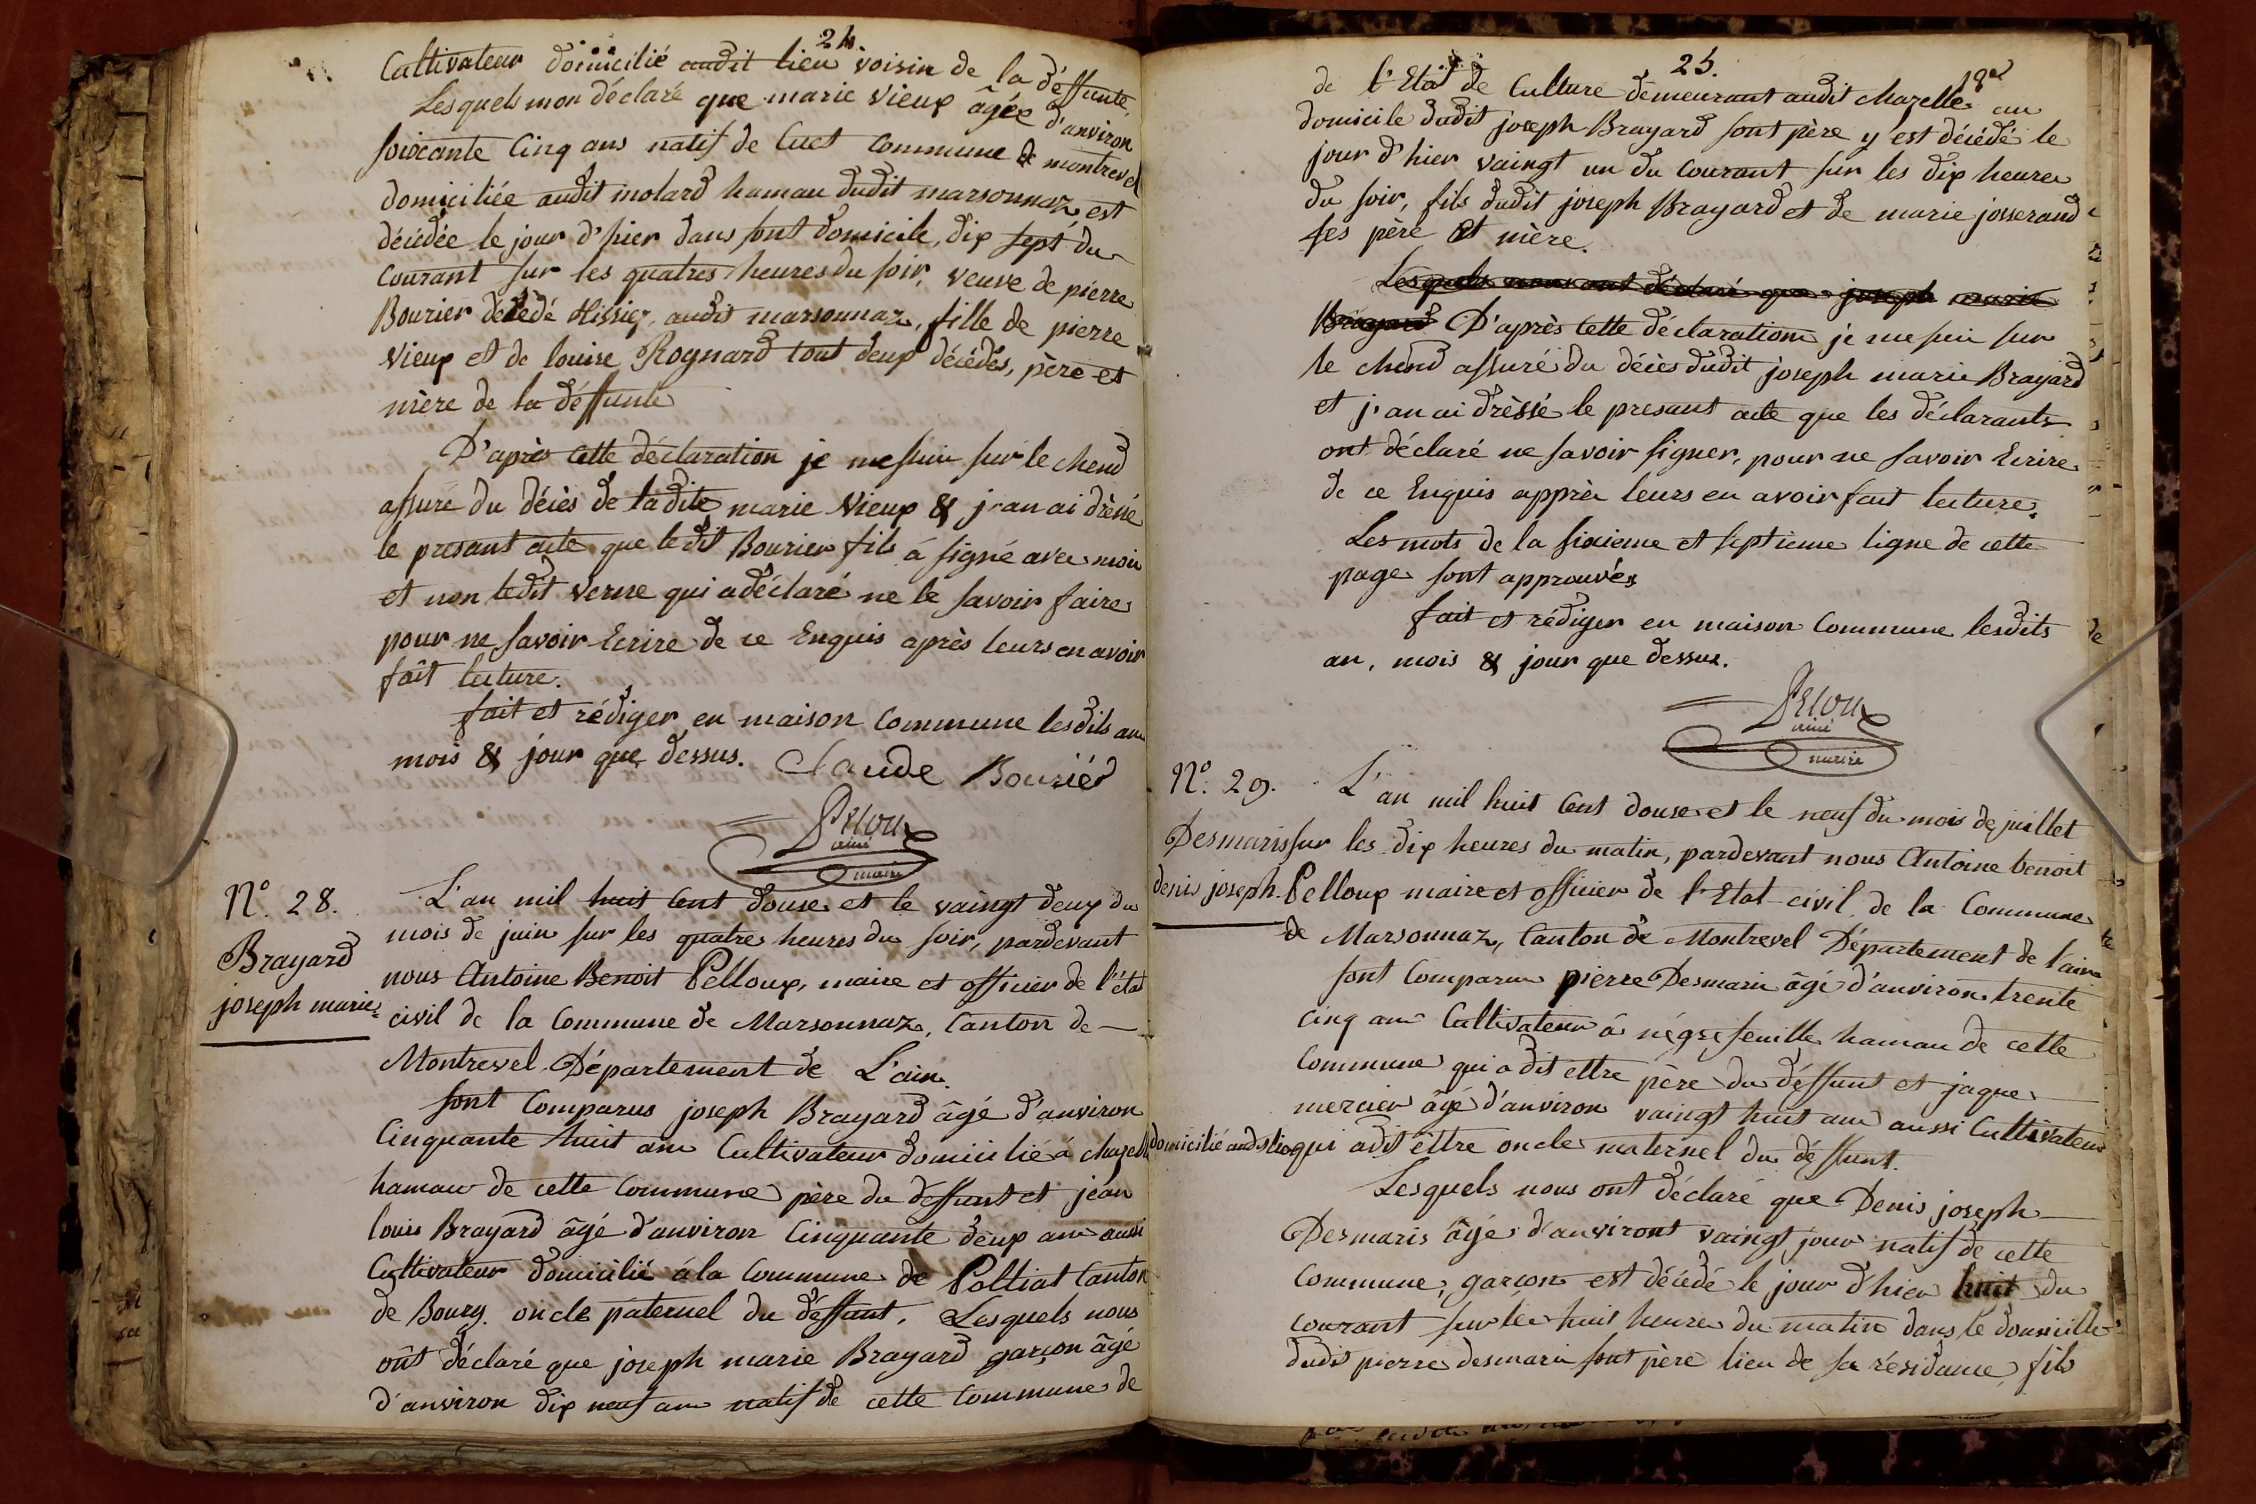 24.
Cultivateur domicilié audit lieu voisin de la déffunte,
Lesquels mon déclaré que marie vieux âgée d'anviron
soixante Cinq ans natif de Cuet Commune de montrevel
domiciliée audit molard hamau dudit marsonnaz est
décédée le jour d'hier dans sont domicile, dix sept du
Courant sur les quatres heures du soir, veuve de pierre
Bourier décédé tissier, audit marsonnaz, fille de pierre
vieux et de louise Rognard tout deux décédés, père et
mère de la déffunte
D'après cette déclaration je me suis sur le chend
assuré du décès de ladite marie vieux & j'an ai drèssé
le presant acte que ledit Bourier fils á signé avec moi
et non ledit verne qui a déclaré ne le savoir faire
pour ne savoir Ecrire de ce Enquis après leurs en avoir
fâit lecture.
fait et rédiger en maison Commune lesdits an
mois & jour que dessus. Claude Bouriér
Peloux
ainé
maire
N.° 28.
Brayard
joseph marie
L'an mil huit Cent douse et le vaingt deux du
mois de juin sur les quatres heures du soir, pardevant
nous Antoine Benoit Pelloux, maire et officier de l'état
civil de la Commune de Marsonnaz, Canton de
Montrevel Département de L'ain.
sont Comparus joseph Brayard âgé d'anviron
Cinquante huit ans Cultivateur domicilié á chazelle
hamau de cette Commune père du déffunt et jean
louis Brayard âgé d'anviron Cinquante deux ans aussi
Cultivateur domicilié á la Commune de Polliat Canton
de Bourg. oncle paternel du déffunt, Lesquels nous
oñt déclaré que joseph marie Brayard garçon âgé
d'anviron dix neuf ans natif de cette Commune de
25.
de l'Etat de Culture demeurant audit chazelle au
domicile dudit joseph Brayard sont père y est décédé le
jour d'hier vaingt un du Courant sur les dix heures
du soir, fils dudit joseph Brayard et de marie josserand
ses père et mère.
Lesquels nous ont déclaré que joseph marie
Brayard D'après cette déclaration je me suis sur
le chend assuré du décès dudit joseph marie Brayard
et j'an ai drèssé le presant acte que les déclarants
ont déclaré ne savoir signer, pour ne savoir Ecrire
de ce Enquis apprès leurs en avoir fait lecture.
Les mots de la sixieme et septieme ligne de cette
page sont approuvés
fait et rédiger en maison Commune lesdits
an, mois & jour que dessus.
Peloux
ainé
maire
N.° 29.
Desmaris
denis joseph
L'an mil huit Cent douse et le neuf du mois de juillet
sur les dix heures du matin, pardevant nous Antoine benoit
Pelloux maire et officier de l'Etat civil de la Commune
de Marsonnaz, Canton de Montrevel Département de l'ain
sont Comparus pierre Desmaris âgé d'anviron trente
cinq ans Cultivateur á négrefeuille hamau de cette
Commune qui a dit ettre père du déffunt et jaque
mercier âgé d'anviron vaingt huit ans aussi Cultivateur
domicilié audit lieu qui a dit êttre oncle maternel du déffunt.
Lesquels nous ont déclaré que Denis joseph
Desmaris âgé d'anviront vaingt jour natif de cette
Commune, garçon est décédé le jour d'hier huit du
courant sur les huit heures du matin dans le domicille
dudit pierre desmaris sont père lieu de sa résidance, fils